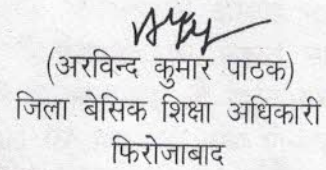 (अरविन्द कुमार पाठक)
जिला बेसिक शिक्षा अधिकारी
फिरोजाबाद